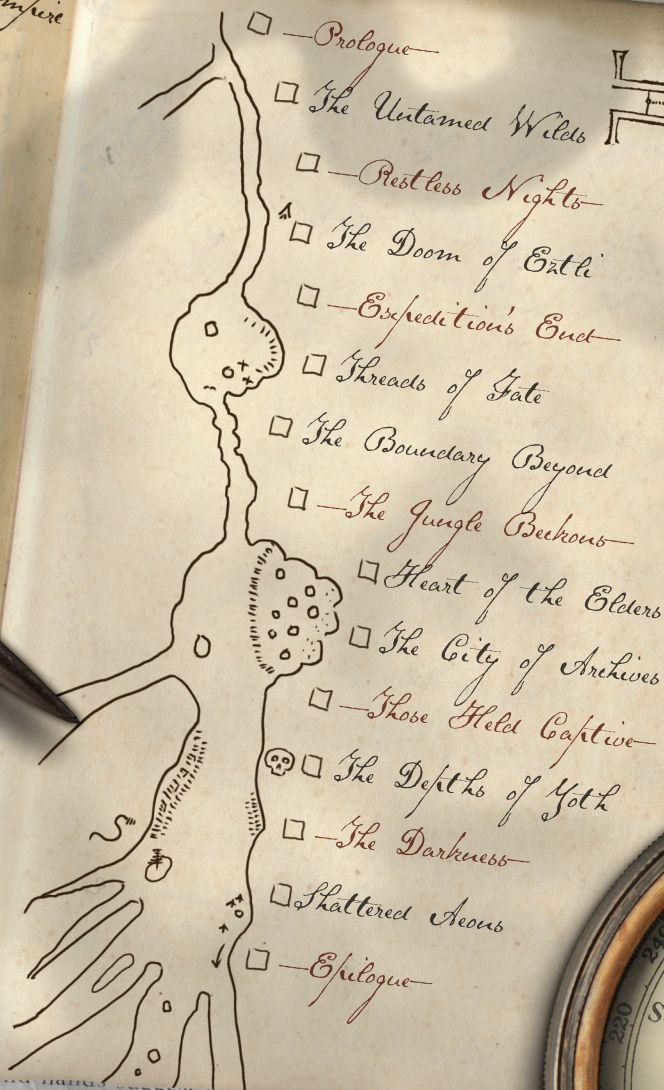 mpire
—Prologue—
The Untamed Wilds
—Restless Nights—
The Doom of Eztli
—Expedition's End—
Threads of Fate
The Boundary Beyond
—The Jungle Beckons—
Heart of the Elders
The City of Archives
—Those Held Captive—
The Depths of Yoth
—The Darkness—
Shattered Aeons
—Epilogue—
240
220
S